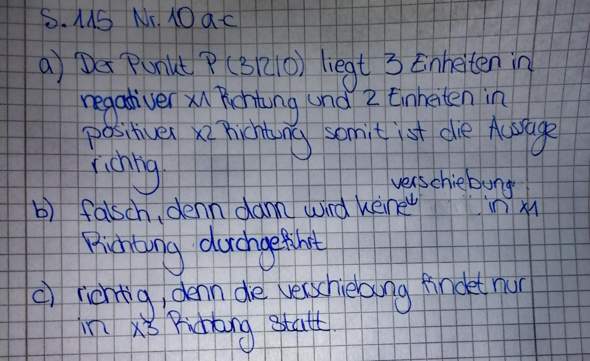 S. 115 Nr. 10 a-c
a) Der Punkt P (3|2|0) liegt 3 Einheiten in
negativer x1 Richtung und 2 Einheiten in
positiver x2 Richtung somit ist die Aussage
richtig.
verschiebung
b) falsch, denn dann wird keine in x1
Richtung durchgeführt
c) richtig, denn die verschiebung findet nur
in x3 Richtung statt.